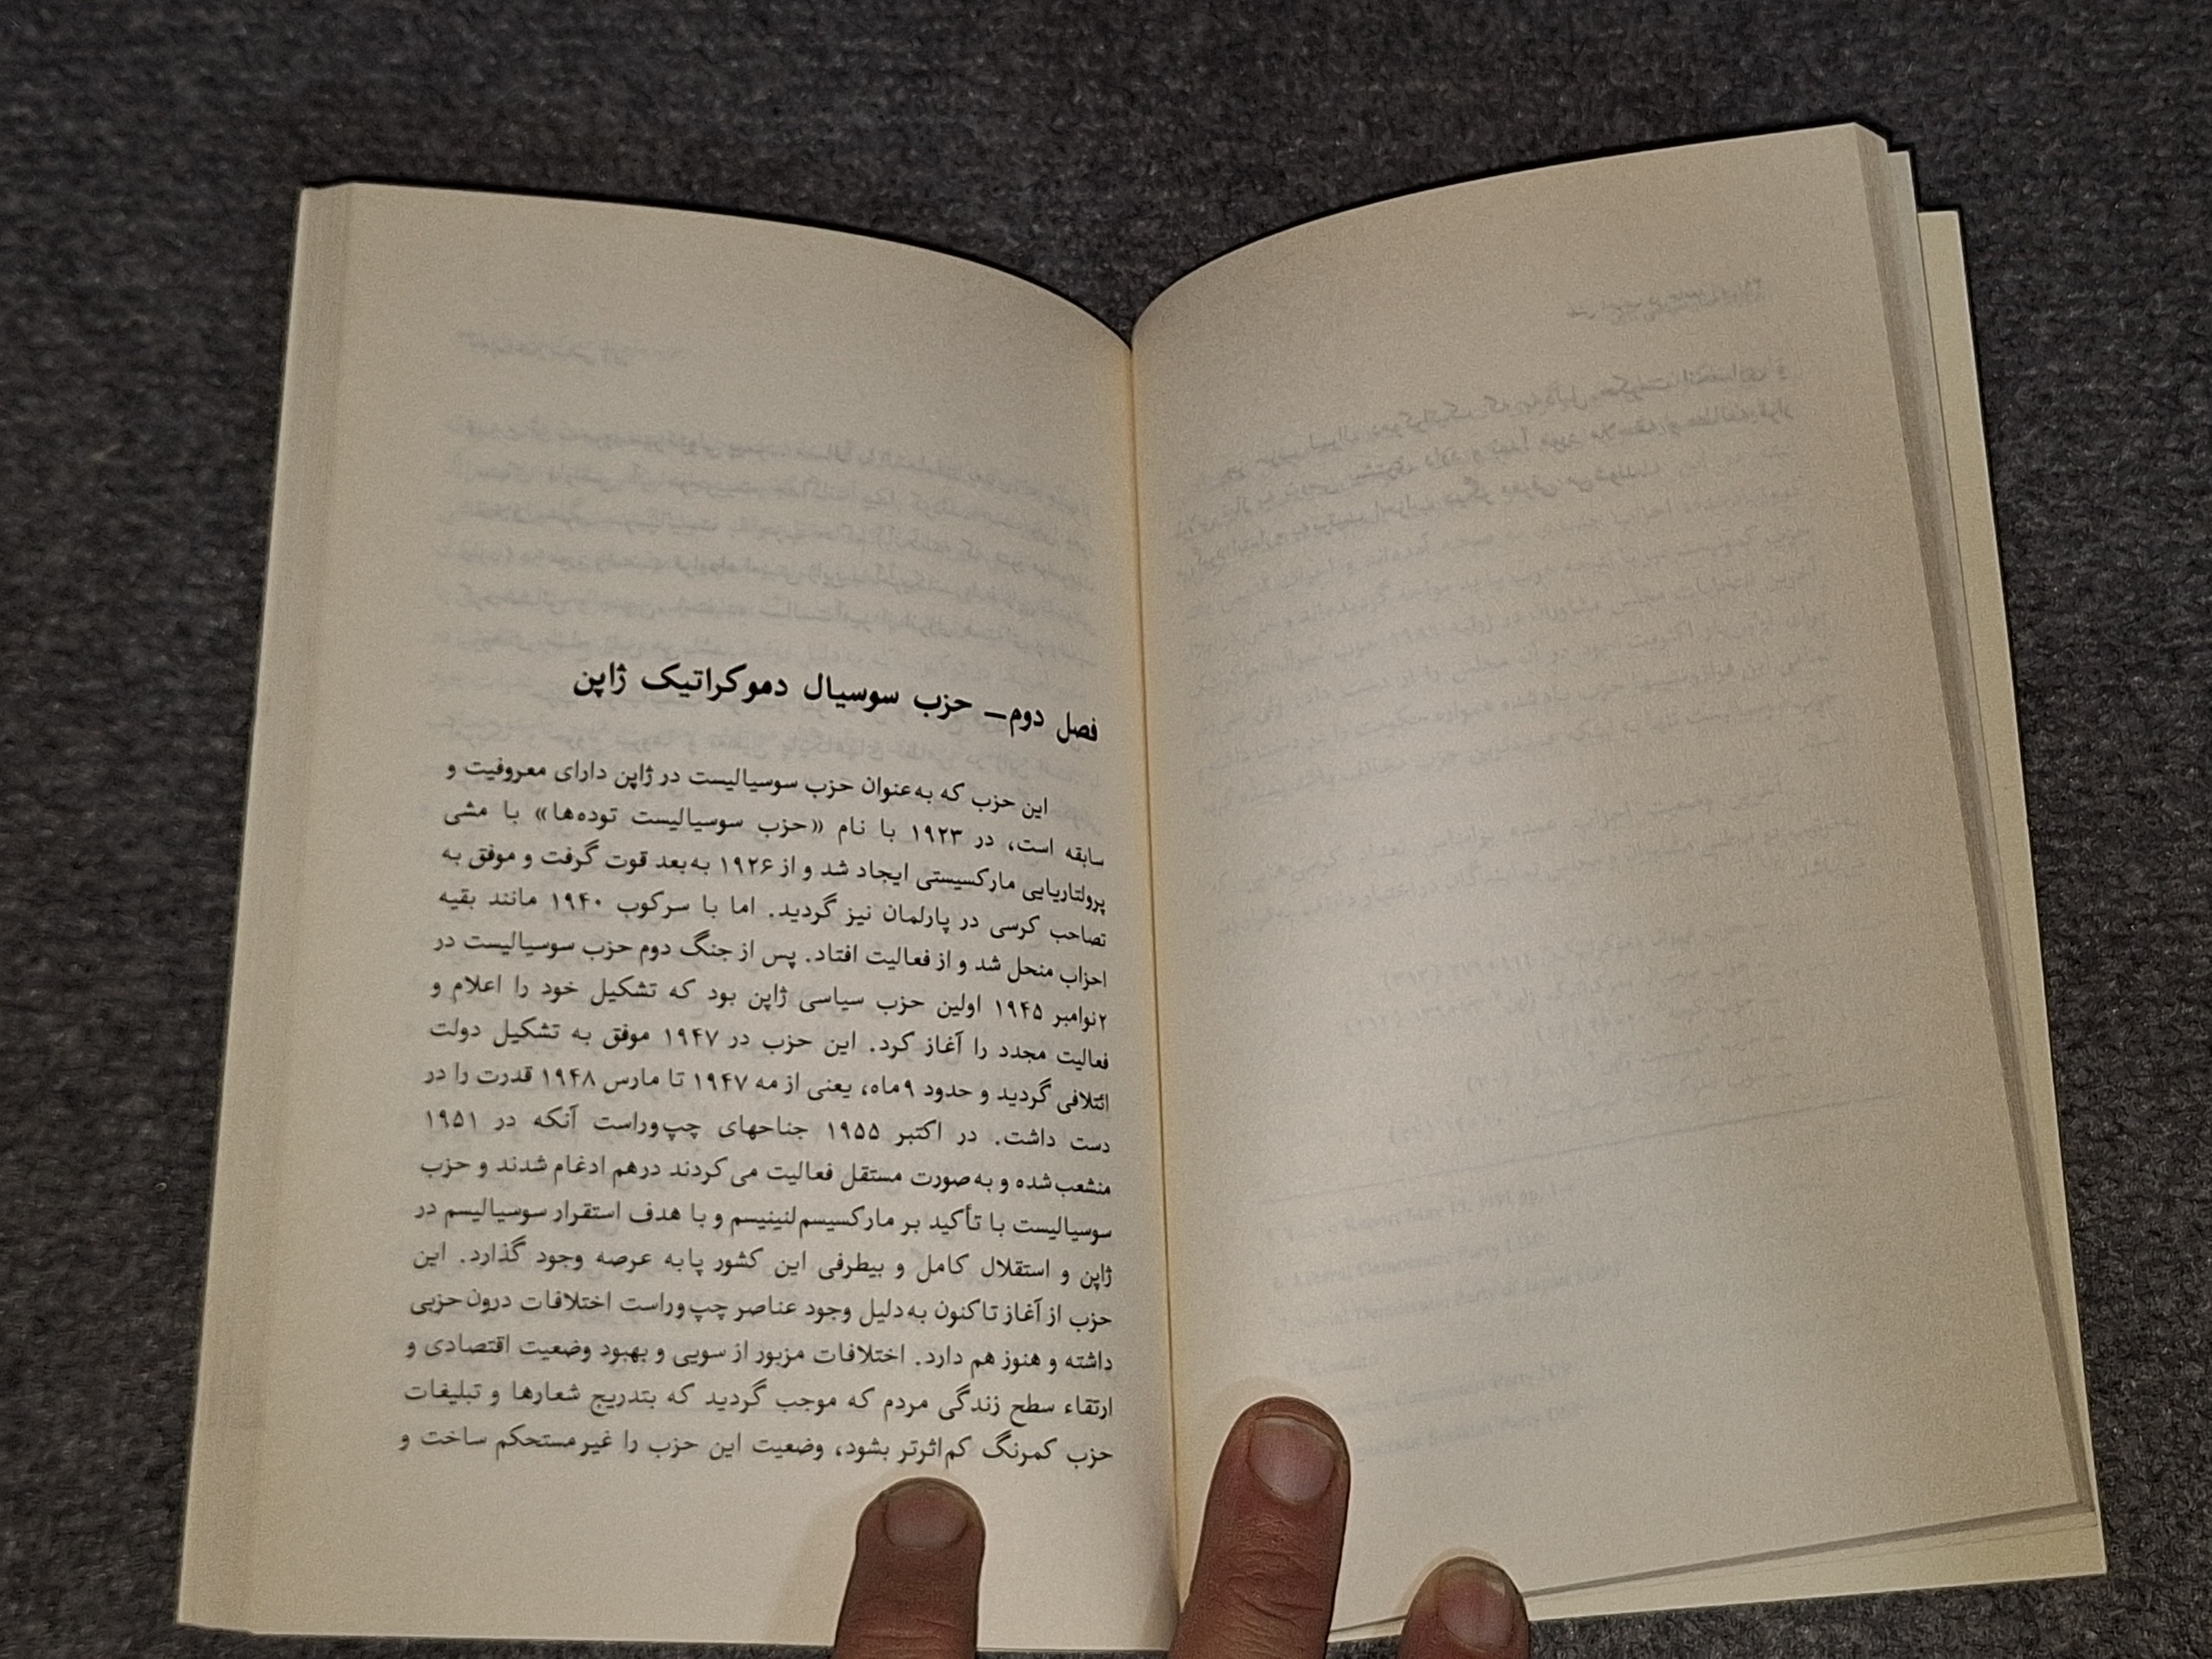 فصل دوم_ حزب سوسیال دموکراتیک ژاپن
این حزب که به‌عنوان حزب سوسیالیست در ژاپن دارای معروفیت و
سابقه است، در ۱۹۲۳ با نام «حزب سوسیالیست توده‌ها» با مشی
پرولتاریایی مارکسیستی ایجاد شد و از ۱۹۲۶ به‌بعد قوت گرفت و موفق به
تصاحب کرسی در پارلمان نیز گردید. اما با سرکوب ۱۹۴۰ مانند بقیه
احزاب منحل شد و از فعالیت افتاد. پس از جنگ دوم حزب سوسیالیست در
۲نوامبر ۱۹۴۵ اولین حزب سیاسی ژاپن بود که تشکیل خود را اعلام و
فعالیت مجدد را آغاز کرد. این حزب در ۱۹۴۷ موفق به تشکیل دولت
ائتلافی گردید و حدود ۹ماه، یعنی از مه ۱۹۴۷ تا مارس ۱۹۴۸ قدرت را در
دست داشت. در اکتبر ۱۹۵۵ جناحهای چپ‌وراست آنکه در ۱۹۵۱
منشعب‌شده و به‌صورت مستقل فعالیت می‌کردند درهم ادغام شدند و حزب
سوسیالیست با تأکید بر مارکسیسم‌لنینیسم و با هدف استقرار سوسیالیسم در
ژاپن و استقلال کامل و بیطرفی این کشور پابه عرصه وجود گذارد. این
حزب از آغاز تاکنون به‌دلیل وجود عناصر چپ‌وراست اختلافات درون‌حزبی
داشته و هنوز هم دارد. اختلافات مزبور از سویی و بهبود وضعیت اقتصادی و
ارتقاء سطح زندگی مردم که موجب گردید که بتدریج شعارها و تبلیغات
حزب کمرنگ کم‌اثرتر بشود، وضعیت این حزب را غیرمستحکم ساخت و